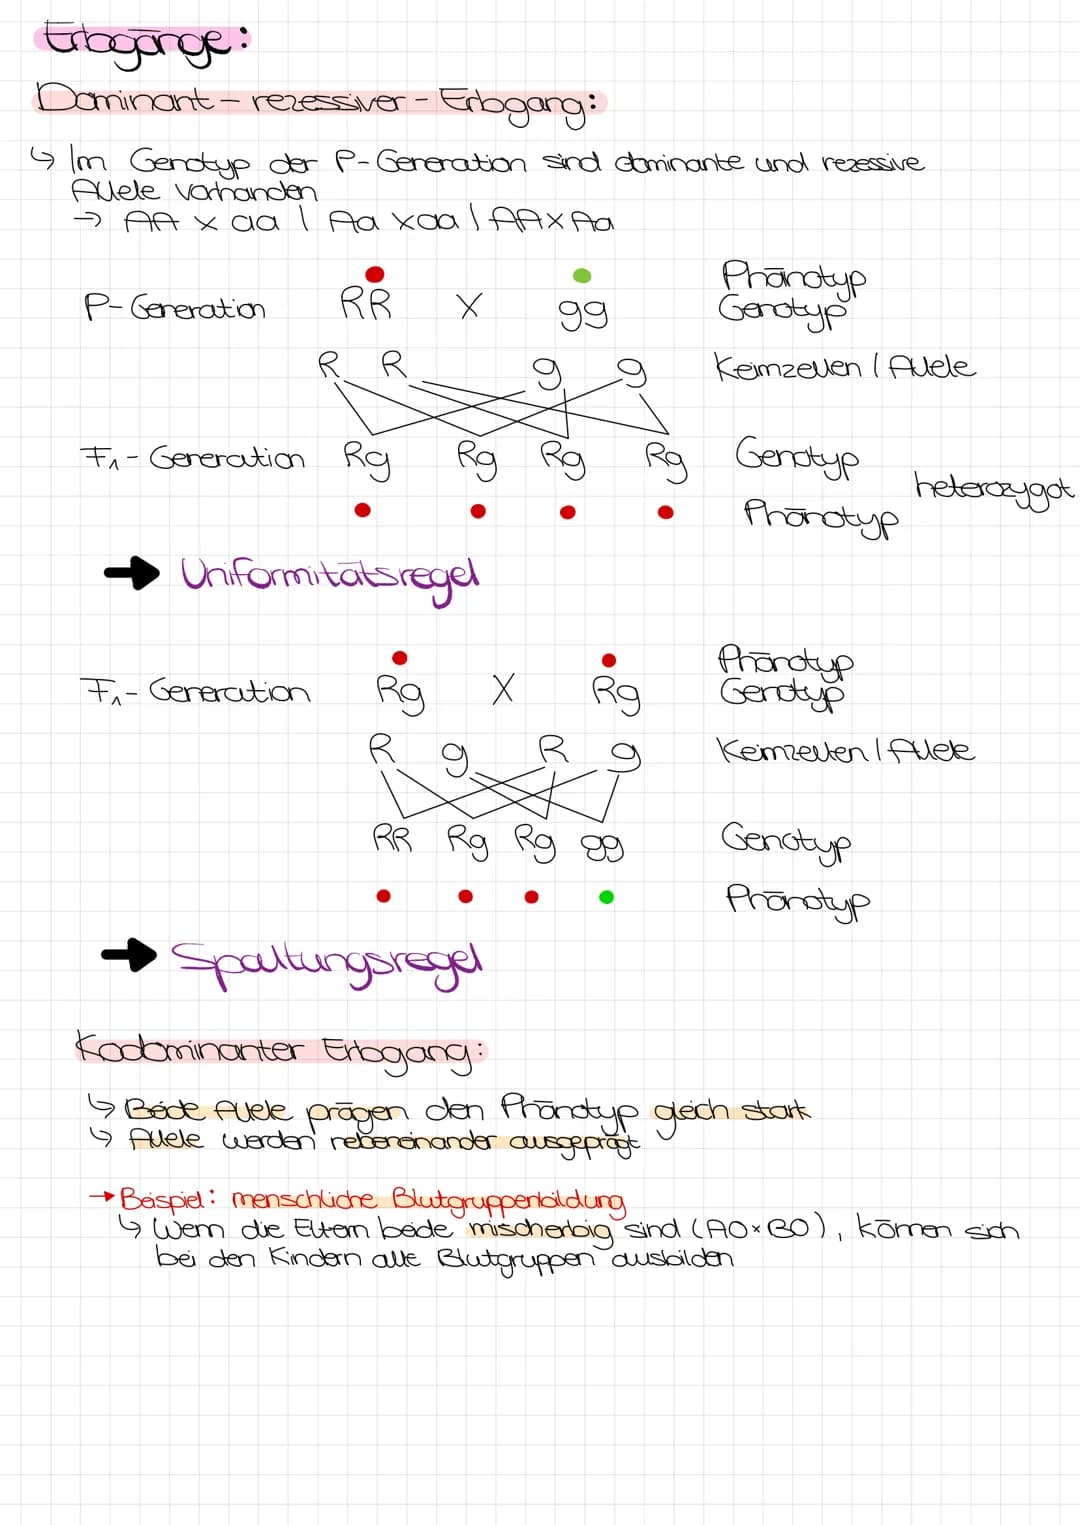 Erbgänge:
Dominant-rezessiver-Erbgang:
↳ Im Genotyp der P-Generation sind dominante und rezessive
Allele vorhanden
→ AA x aa | Aa x aa | AA x Aa
Phänotyp
P-Generation RR X gg Genotyp
R R g g Keimzellen / Allele
F1-Generation Rg Rg Rg Rg Genotyp
heterozygot
Phänotyp
→ Uniformitätsregel
Phänotyp
F1-Generation Rg X Rg Genotyp
R g R g Keimzellen / Allele
RR Rg Rg gg Genotyp
Phänotyp
→ Spaltungsregel
Kodominanter Erbgang:
↳ Beide Allele prägen den Phänotyp gleich stark
↳ Allele werden nebeneinander ausgeprägt
→ Beispiel: menschliche Blutgruppenbildung
↳ Wenn die Eltern beide mischerbig sind (AO x BO), können sich
bei den Kindern alle Blutgruppen ausbilden